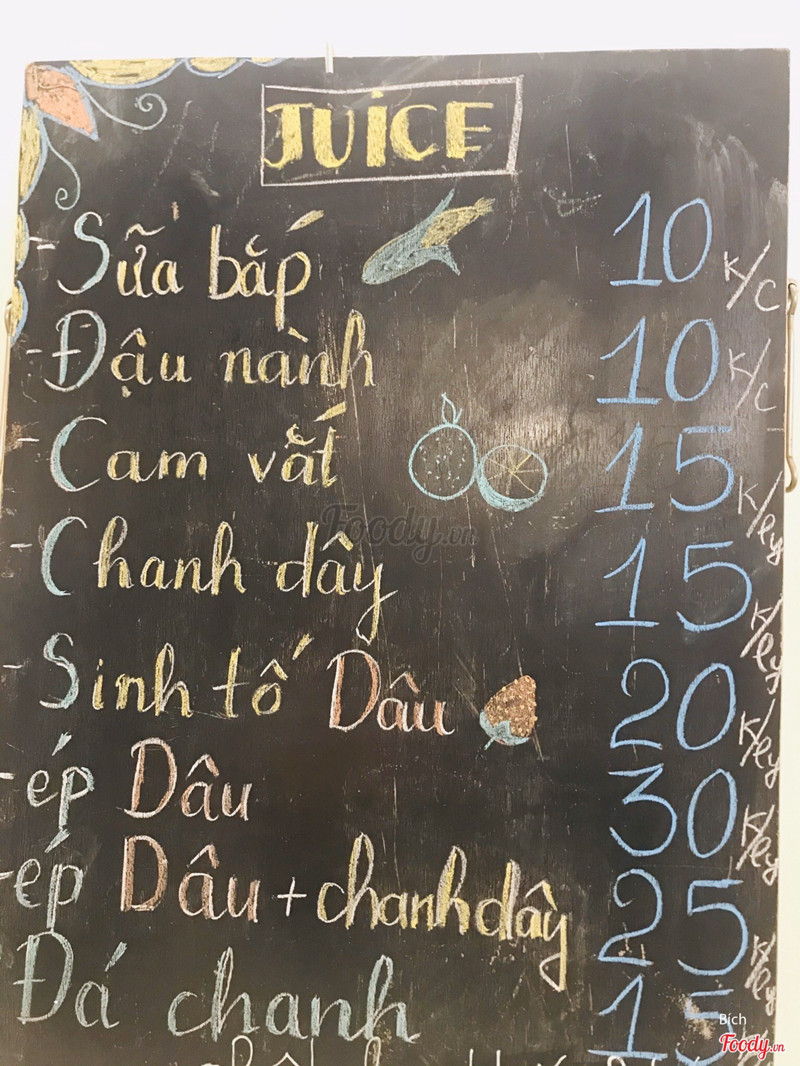 JUICE
- Sữa bắp 10 K/C
- Đậu nành 10 K/C
- Cam vắt 15 K/ly
- Chanh dây 15 K/ly
- Sinh tố Dâu 20 K/ly
- ép Dâu 30 K/ly
- ép Dâu + chanh dây 25 K/ly
Đá chanh 15
Foody.vn
Bịch
Foody.vn